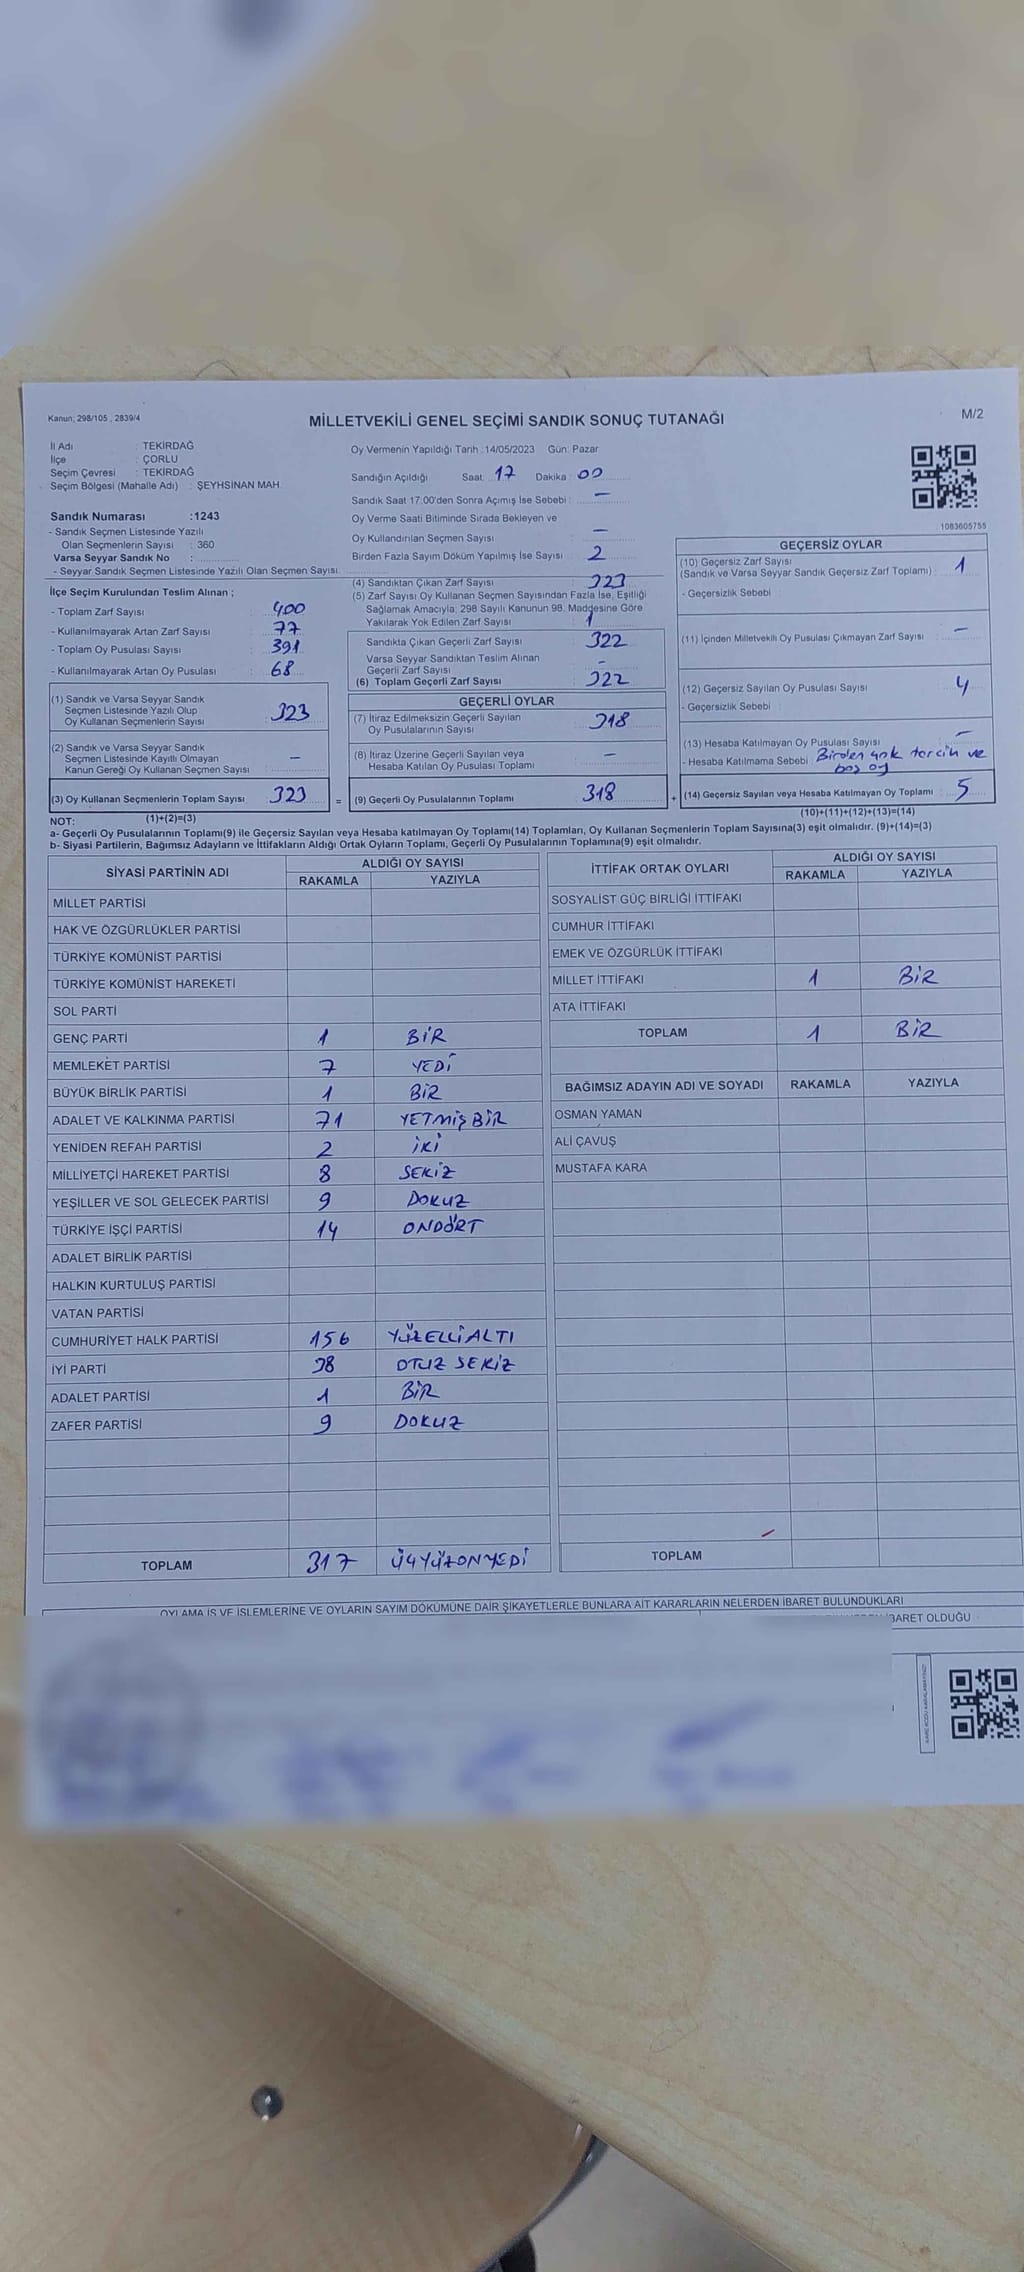 Kanun; 298/105 , 2839/4
MİLLETVEKİLİ GENEL SEÇİMİ SANDIK SONUÇ TUTANAĞI
M/2
İl Adı : TEKİRDAĞ
İlçe : ÇORLU
Seçim Çevresi : TEKİRDAĞ
Seçim Bölgesi (Mahalle Adı) : ŞEYHSİNAN MAH.
Oy Vermenin Yapıldığı Tarih :14/05/2023 Gün: Pazar
Sandığın Açıldığı Saat: 17 Dakika : 00
Sandık Saat 17:00'den Sonra Açımış İse Sebebi : —
Oy Verme Saati Bitiminde Sırada Bekleyen ve
Oy Kullandırılan Seçmen Sayısı —
Birden Fazla Sayım Döküm Yapılmış İse Sayısı : 2
1083605755
Sandık Numarası :1243
- Sandık Seçmen Listesinde Yazılı
Olan Seçmenlerin Sayısı : 360
Varsa Seyyar Sandık No :
- Seyyar Sandık Seçmen Listesinde Yazılı Olan Seçmen Sayısı:
İlçe Seçim Kurulundan Teslim Alınan ;
- Toplam Zarf Sayısı : 400
- Kullanılmayarak Artan Zarf Sayısı : 77
- Toplam Oy Pusulası Sayısı : 391
- Kullanılmayarak Artan Oy Pusulası : 68
(1) Sandık ve Varsa Seyyar Sandık
Seçmen Listesinde Yazılı Olup
Oy Kullanan Seçmenlerin Sayısı : 323
(2) Sandık ve Varsa Seyyar Sandık
Seçmen Listesinde Kayıtlı Olmayan
Kanun Gereği Oy Kullanan Seçmen Sayısı : —
(3) Oy Kullanan Seçmenlerin Toplam Sayısı : 323
(1)+(2)=(3)
(4) Sandıktan Çıkan Zarf Sayısı : 323
(5) Zarf Sayısı Oy Kullanan Seçmen Sayısından Fazla İse, Eşitliği
Sağlamak Amacıyla; 298 Sayılı Kanunun 98. Maddesine Göre
Yakılarak Yok Edilen Zarf Sayısı : 1
Sandıkta Çıkan Geçerli Zarf Sayısı : 322
Varsa Seyyar Sandıktan Teslim Alınan
Geçerli Zarf Sayısı : -
(6) Toplam Geçerli Zarf Sayısı : 322
GEÇERLİ OYLAR
(7) İtiraz Edilmeksizin Geçerli Sayılan
Oy Pusulalarının Sayısı : 318
(8) İtiraz Üzerine Geçerli Sayılan veya
Hesaba Katılan Oy Pusulası Toplamı : —
= (9) Geçerli Oy Pusulalarının Toplamı : 318
GEÇERSİZ OYLAR
(10) Geçersiz Zarf Sayısı
(Sandık ve Varsa Seyyar Sandık Geçersiz Zarf Toplamı) : 1
- Geçersizlik Sebebi :
(11) İçinden Milletvekili Oy Pusulası Çıkmayan Zarf Sayısı : —
(12) Geçersiz Sayılan Oy Pusulası Sayısı : 4
- Geçersizlik Sebebi :
(13) Hesaba Katılmayan Oy Pusulası Sayısı : —
- Hesaba Katılmama Sebebi : Birden çok tercih ve
boş oy
+ (14) Geçersiz Sayılan veya Hesaba Katılmayan Oy Toplamı : 5
(10)+(11)+(12)+(13)=(14)
NOT:
a- Geçerli Oy Pusulalarının Toplamı(9) ile Geçersiz Sayılan veya Hesaba katılmayan Oy Toplamı(14) Toplamları, Oy Kullanan Seçmenlerin Toplam Sayısına(3) eşit olmalıdır. (9)+(14)=(3)
b- Siyasi Partilerin, Bağımsız Adayların ve İttifakların Aldığı Ortak Oyların Toplamı, Geçerli Oy Pusulalarının Toplamına(9) eşit olmalıdır.
SİYASİ PARTİNİN ADI
ALDIĞI OY SAYISI
RAKAMLA YAZIYLA
MİLLET PARTİSİ
HAK VE ÖZGÜRLÜKLER PARTİSİ
TÜRKİYE KOMÜNİST PARTİSİ
TÜRKİYE KOMÜNİST HAREKETİ
SOL PARTİ
GENÇ PARTİ 1 BİR
MEMLEKET PARTİSİ 7 YEDİ
BÜYÜK BİRLİK PARTİSİ 1 BİR
ADALET VE KALKINMA PARTİSİ 71 YETMİŞ BİR
YENİDEN REFAH PARTİSİ 2 İKİ
MİLLİYETÇİ HAREKET PARTİSİ 8 SEKİZ
YEŞİLLER VE SOL GELECEK PARTİSİ 9 DOKUZ
TÜRKİYE İŞÇİ PARTİSİ 14 ONDÖRT
ADALET BİRLİK PARTİSİ
HALKIN KURTULUŞ PARTİSİ
VATAN PARTİSİ
CUMHURİYET HALK PARTİSİ 156 YÜZELLİALTI
İYİ PARTİ 38 OTUZ SEKİZ
ADALET PARTİSİ 1 BİR
ZAFER PARTİSİ 9 DOKUZ
TOPLAM 317 ÜÇYÜZONYEDİ
İTTİFAK ORTAK OYLARI
ALDIĞI OY SAYISI
RAKAMLA YAZIYLA
SOSYALİST GÜÇ BİRLİĞİ İTTİFAKI
CUMHUR İTTİFAKI
EMEK VE ÖZGÜRLÜK İTTİFAKI
MİLLET İTTİFAKI 1 BİR
ATA İTTİFAKI
TOPLAM 1 BİR
BAĞIMSIZ ADAYIN ADI VE SOYADI RAKAMLA YAZIYLA
OSMAN YAMAN
ALİ ÇAVUŞ
MUSTAFA KARA
TOPLAM
OYLAMA İŞ VE İŞLEMLERİNE VE OYLARIN SAYIM DÖKÜMÜNE DAİR ŞİKAYETLERLE BUNLARA AİT KARARLARIN NELERDEN İBARET BULUNDUKLARI
İBARET OLDUĞU